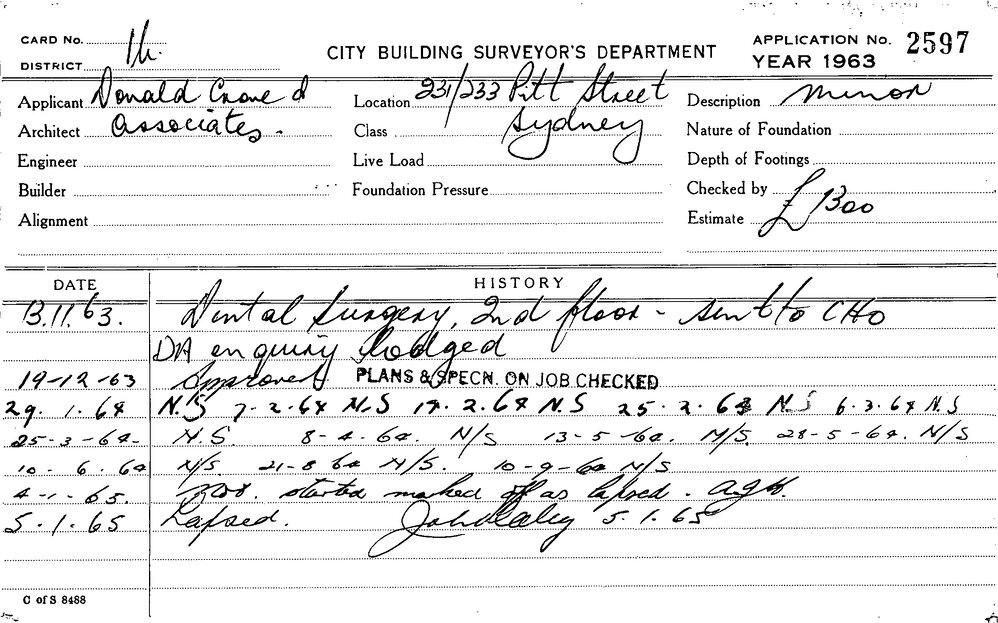 CARD No. 1h.
CITY BUILDING SURVEYOR'S DEPARTMENT
APPLICATION No. 2597
DISTRICT
YEAR 1963
Applicant Donald Crone &
Location 231/233 Pitt Street
Description minor
Architect Associates.
Class Sydney
Nature of Foundation
Engineer
Live Load
Depth of Footings
Builder
Foundation Pressure
Checked by
Alignment
Estimate £1300
DATE
HISTORY
13.11.63. Dental Surgery, 2nd floor - sent to CHO
DA enquiry lodged
19-12-63 Approved PLANS & SPECN. ON JOB CHECKED
29. 1. 64 N.S 7-2.64 N.S 17. 2.64 N.S 25. 2. 64 N.S 6.3.64 N.S
25-3-64- N.S. 8-4.64. N/S 13-5-64. N/S. 28-5-64. N/S
10- 6. 64 N/S. 21-8 64 N/S. 10-9-64 N/S
4-1-65. Not. started marked off as lapsed. agh.
5.1.65 Lapsed. 5.1.65
C of S 8488